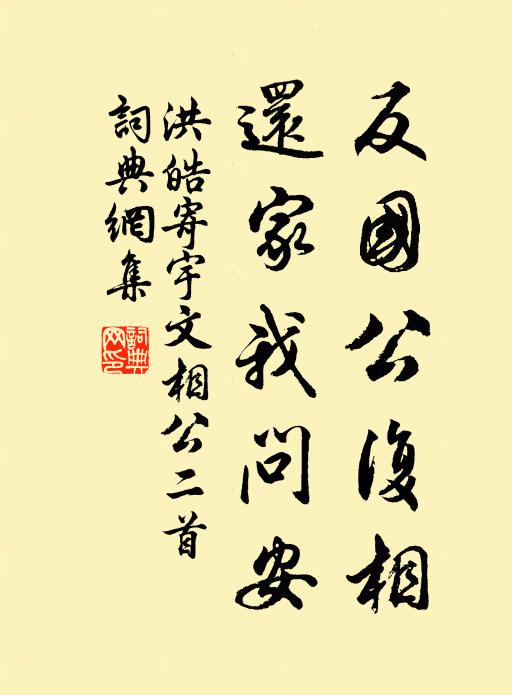 反國公復相
還家我問安
洪皓寄宇文相公二首
詞典網集
詞典網印